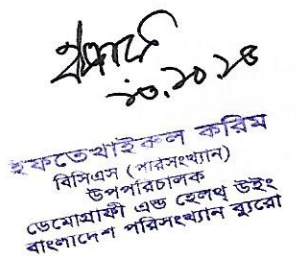 ২৩.১০.১৩
ইফতেখাইরুল করিম
বিসিএস (পরিসংখ্যান)
উপপরিচালক
ডেমোগ্রাফী এন্ড হেলথ্ উইং
বাংলাদেশ পরিসংখ্যান ব্যুরো